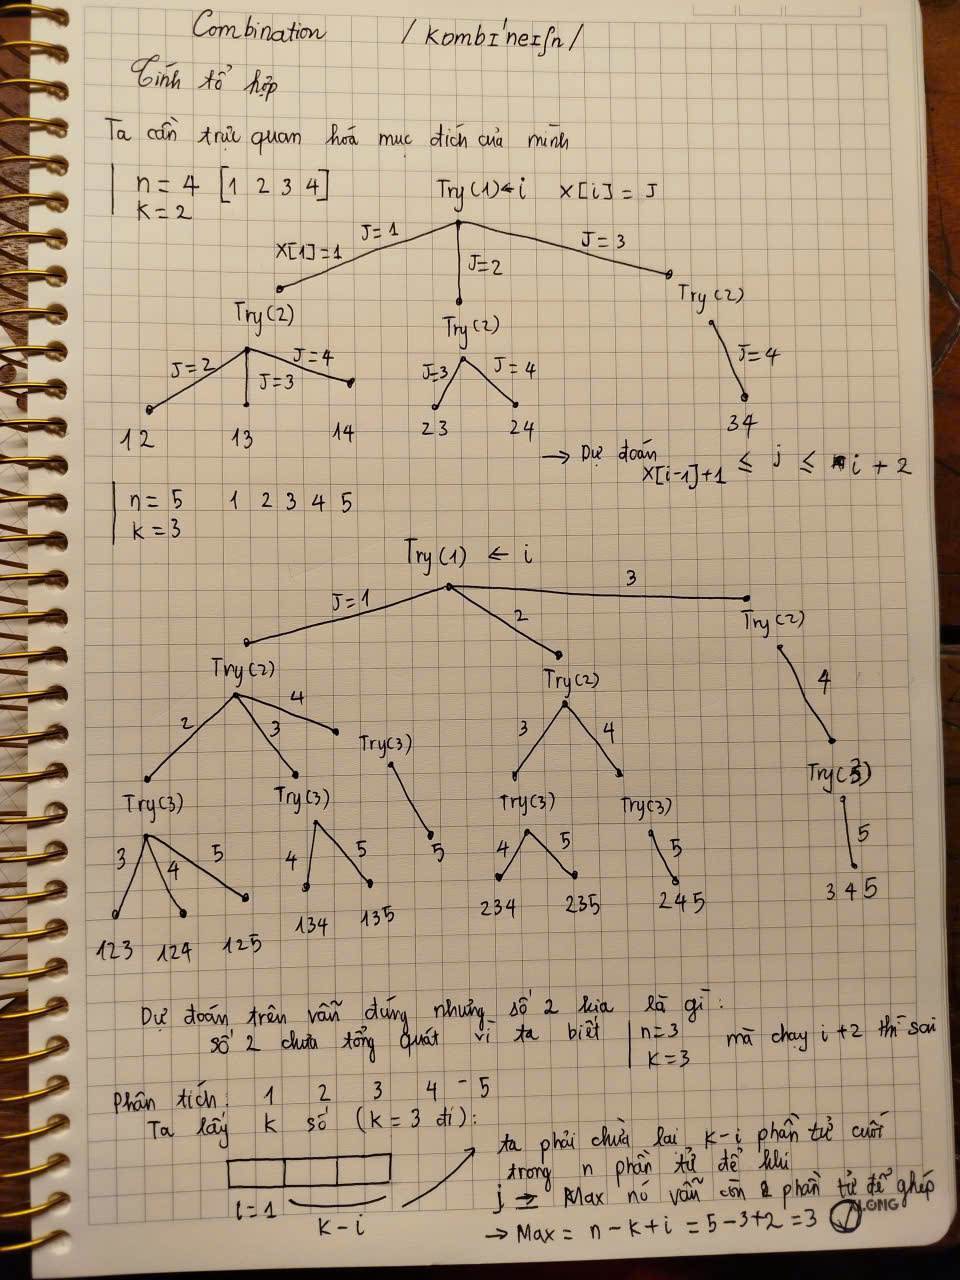 Combination /kombɪ'neɪʃn/
Tính tổ hợp
Ta cần trực quan hoá mục đích của mình
n = 4 [1 2 3 4] Try(1) ← i X[i] = J
K = 2
X[1]=1 J=1 J=2 J=3
Try(2) Try(2) Try(2)
J=2 J=3 J=4 J=3 J=4 J=4
12 13 14 23 24 34
→ Dự đoán X[i-1]+1 ≤ j ≤ i + 2
n = 5 1 2 3 4 5
K = 3
Try(1) ← i
J=1 2 3
Try(2) Try(2) Try(2)
2 3 4 3 4 4
Try(3) Try(3) Try(3) Try(3) Try(3) Try(3)
3 4 5 4 5 5 4 5 5 5
123 124 125 134 135 234 235 245 345
Dự đoán trên vẫn đúng nhưng số 2 kia là gì:
số 2 chưa tổng quát vì ta biết n=3 mà chạy i+2 thì sai
K=3
Phân tích: 1 2 3 4 - 5
Ta lấy k số (k = 3 đi):
ta phải chừa lại k-i phần tử cuối
trong n phần tử để khi
j = Max nó vẫn còn 2 phần tử để ghép
i=1 k-i
→ Max = n - k + i = 5 - 3 + 2 = 3
KLONG